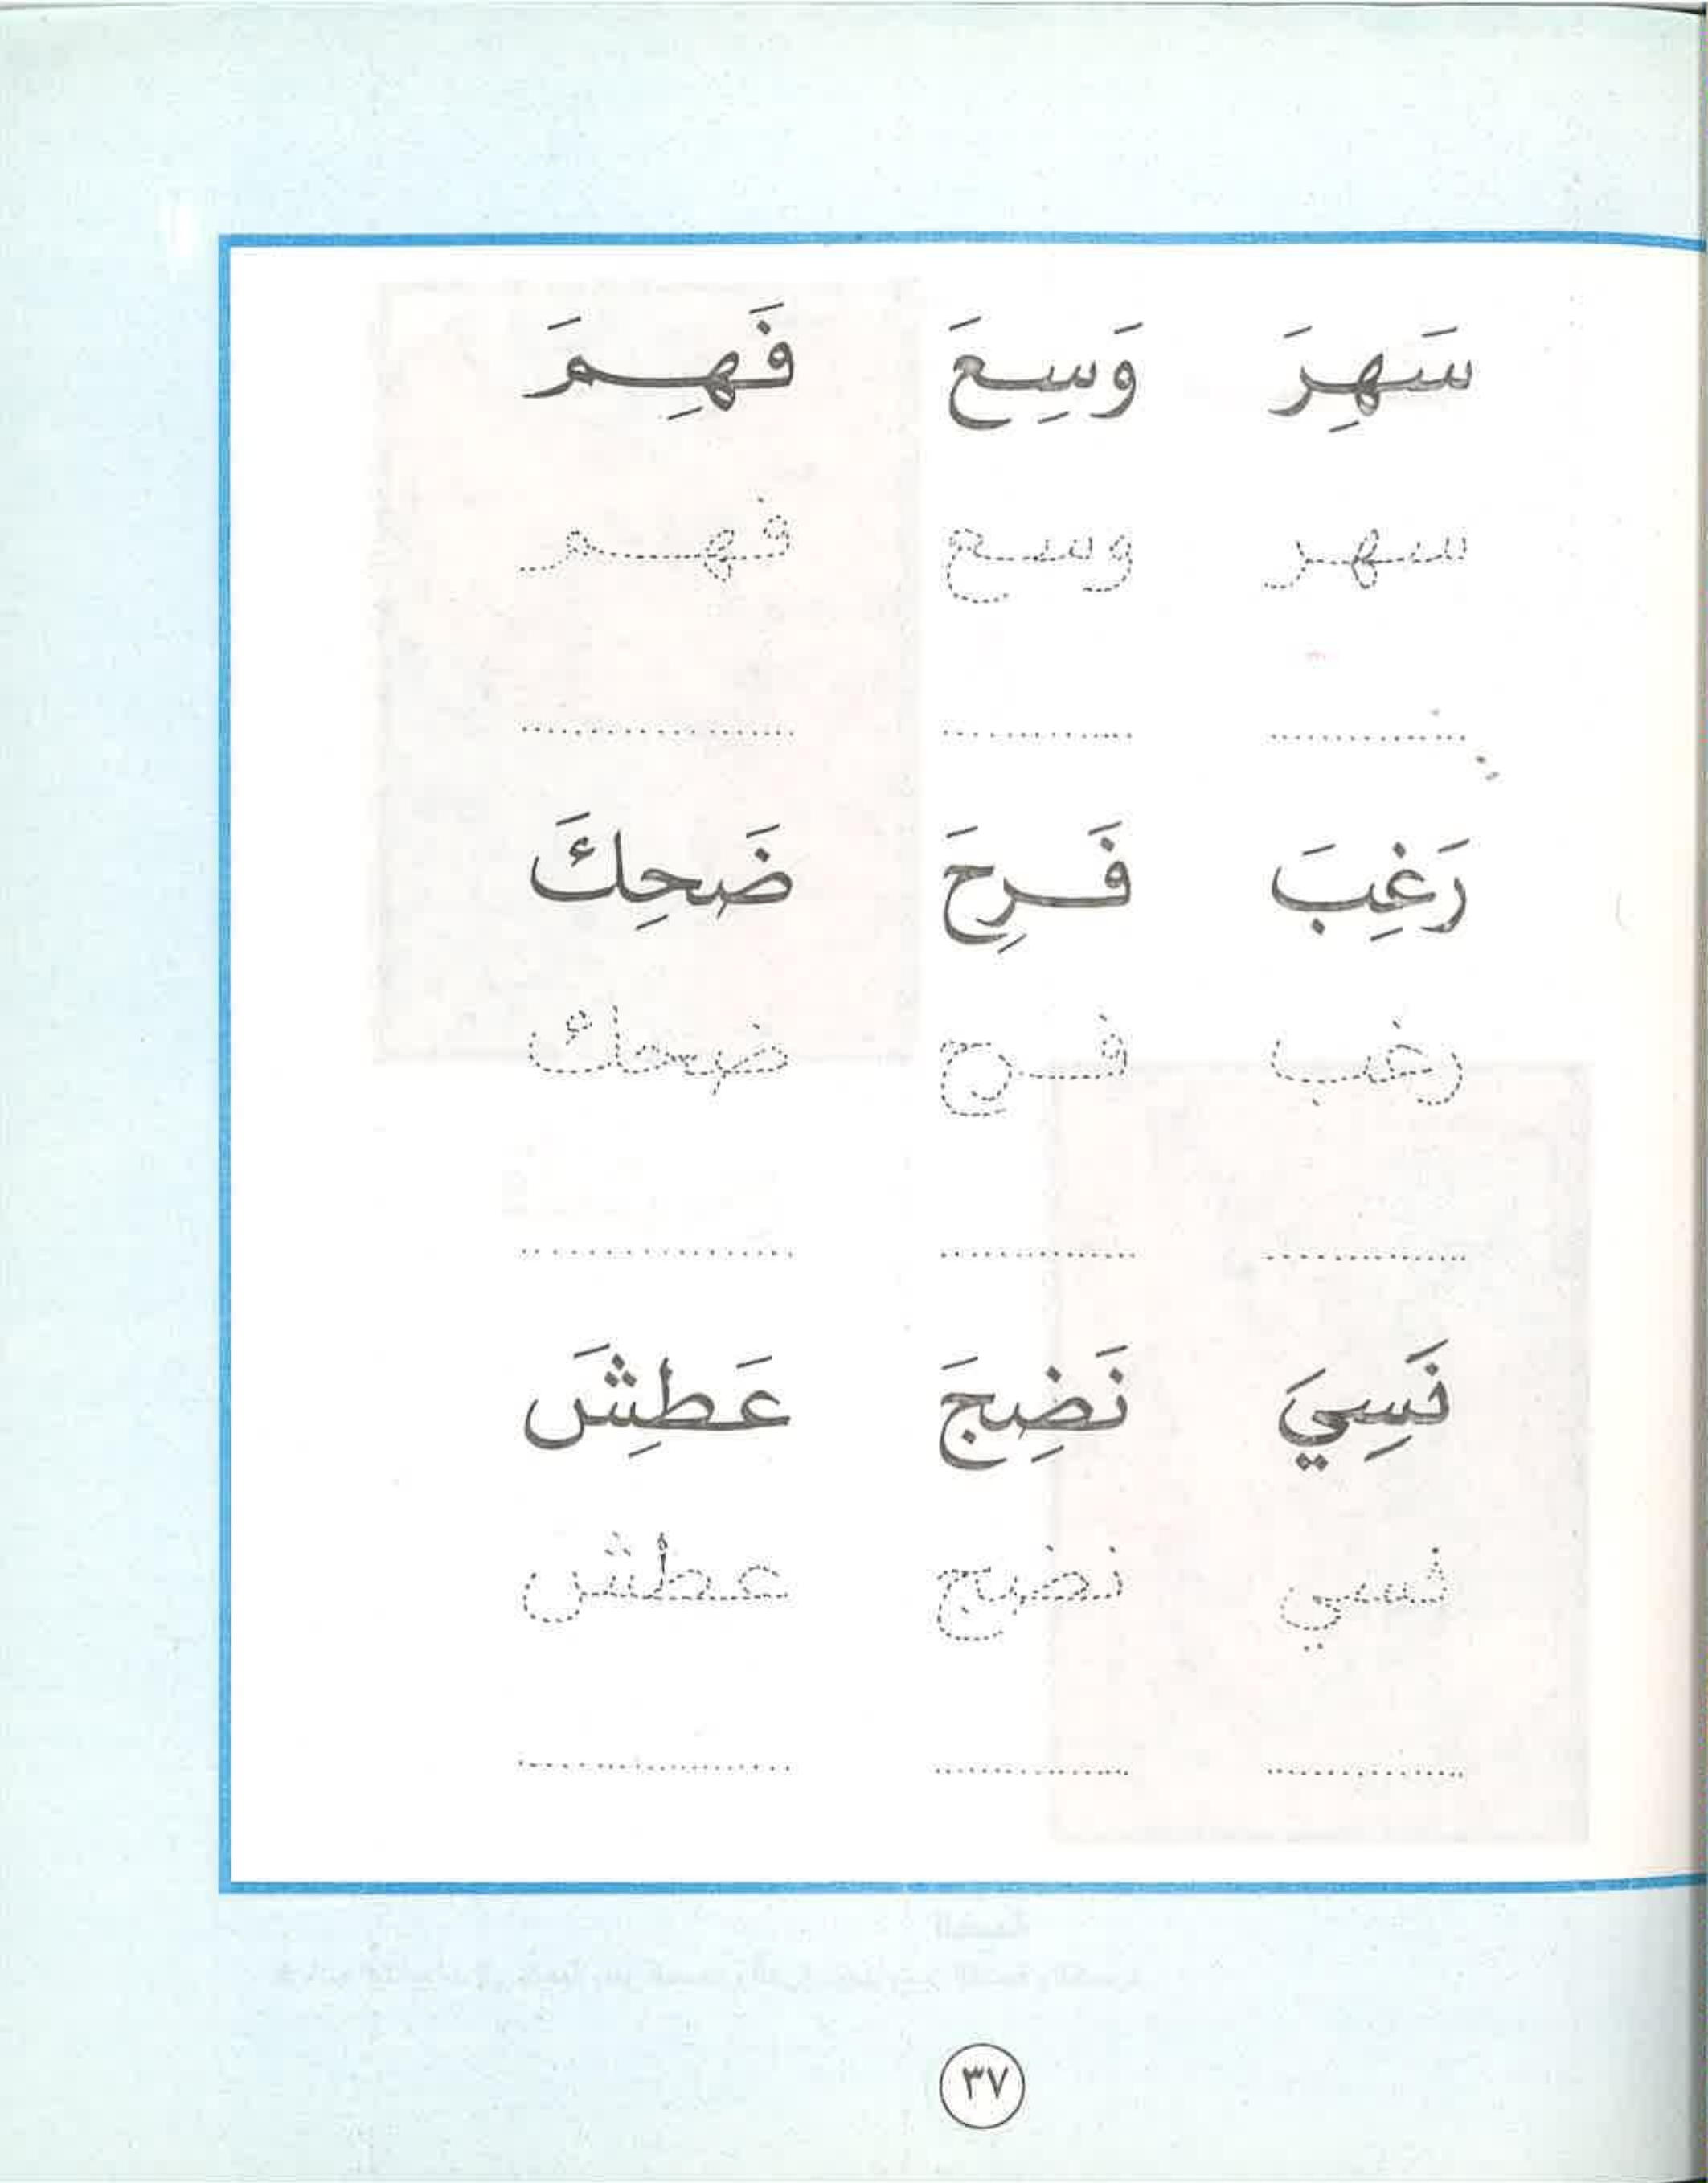 سَهِرَ وَسِعَ فَهِمَ
سهر وسع فهم
رَغِبَ فَرِحَ ضَحِكَ
رغب فرح ضحك
نَسِيَ نَضِجَ عَطِشَ
نسي نضج عطش
٣٧